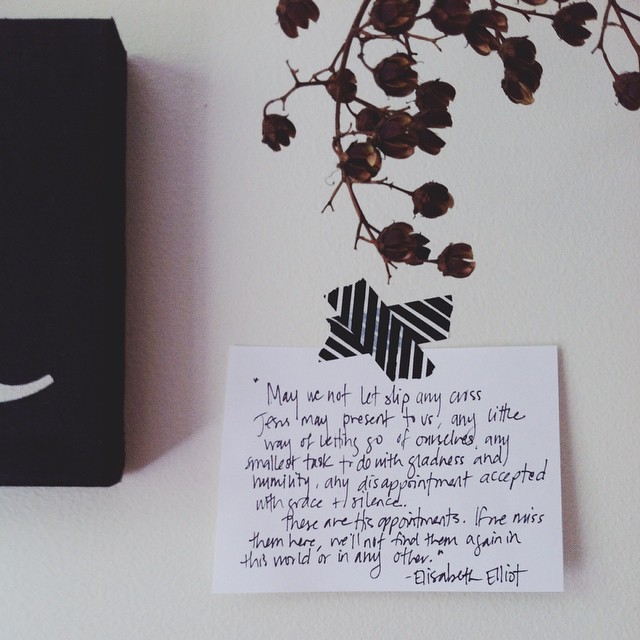 "May we not let slip any cross
Jesus may present to us, any little
way of letting go of ourselves, any
smallest task to do with gladness and
humility, any disappointment accepted
with grace + silence.
These are His appointments. If we miss
them here, we'll not find them again in
this world or in any other."
-Elisabeth Elliot